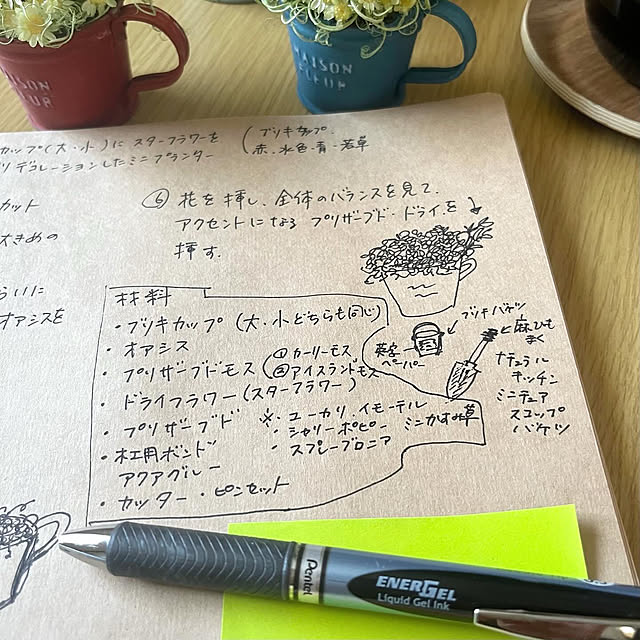 MAISON
FLEUR
MAISON
FLEUR
カップ(大・小)に スターフラワーを
デコレーションしたミニプランター
(ブリキカップ.
赤.水色.青.若草
カット
大きめの
らいに
オアシスを
⑥ 花を挿し、全体のバランスを見て、
アクセントになる プリザーブド・ドライを
挿す.
材料
・ブリキカップ(大・小どちらも同じ)
・オアシス
・プリザーブドモス(①カーリーモス
②アイスランドモス
・ドライフラワー(スターフラワー)
・プリザーブド ※.ユーカリ.イモーテル
・シャリーポピー ミニかすみ草
・スプレーブロニア
・木工用ボンド
アクアグルー
・カッター・ピンセット
ブリキバケツ
英字
ペーパー
麻ひも
まく
ナチュラル
キッチン
ミニチュア
スコップ
バケツ
Pentel
ENERGEL
Liquid Gel Ink